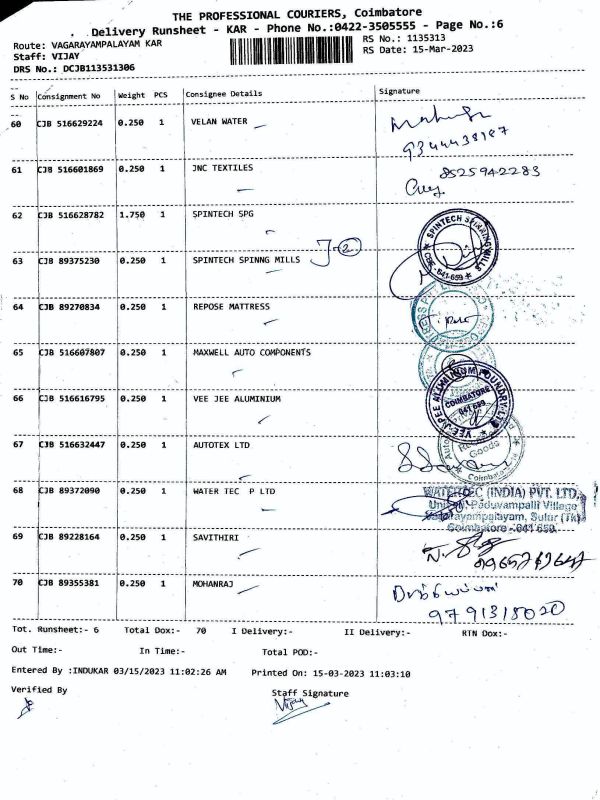 THE PROFESSIONAL COURIERS, Coimbatore
Delivery Runsheet - KAR - Phone No.:0422-3505555 - Page No.:6
Route: VAGARAYAMPALAYAM KAR RS No.: 1135313
Staff: VIJAY RS Date: 15-Mar-2023
DRS No.: DCJB113531306
S No Consignment No Weight PCS Consignee Details Signature
60 CJB 516629224 0.250 1 VELAN WATER
9344438187
61 CJB 516601869 0.250 1 JNC TEXTILES 8525942283
62 CJB 516628782 1.750 1 SPINTECH SPG
SPINTECH SPINNING MILLS
CBE - 641 659
63 CJB 89375230 0.250 1 SPINTECH SPINNG MILLS
64 CJB 89270834 0.250 1 REPOSE MATTRESS
65 CJB 516607807 0.250 1 MAXWELL AUTO COMPONENTS
66 CJB 516616795 0.250 1 VEE JEE ALUMINIUM
VEE JAPEE ALUMINIUM FOUNDRY LTD
COIMBATORE
641 659
67 CJB 516632447 0.250 1 AUTOTEX LTD
Goods
Coimbatore
68 CJB 89372090 0.250 1 WATER TEC P LTD
WATERTEC (INDIA) PVT. LTD.
Paduvampalli Village
Vagarayampalayam, Sulur (Tk)
Coimbatore - 641 659
69 CJB 89228164 0.250 1 SAVITHIRI
70 CJB 89355381 0.250 1 MOHANRAJ
9791318020
Tot. Runsheet:- 6 Total Dox:- 70 I Delivery:- II Delivery:- RTN Dox:-
Out Time:- In Time:- Total POD:-
Entered By :INDUKAR 03/15/2023 11:02:26 AM Printed On: 15-03-2023 11:03:10
Verified By Staff Signature
Vijay